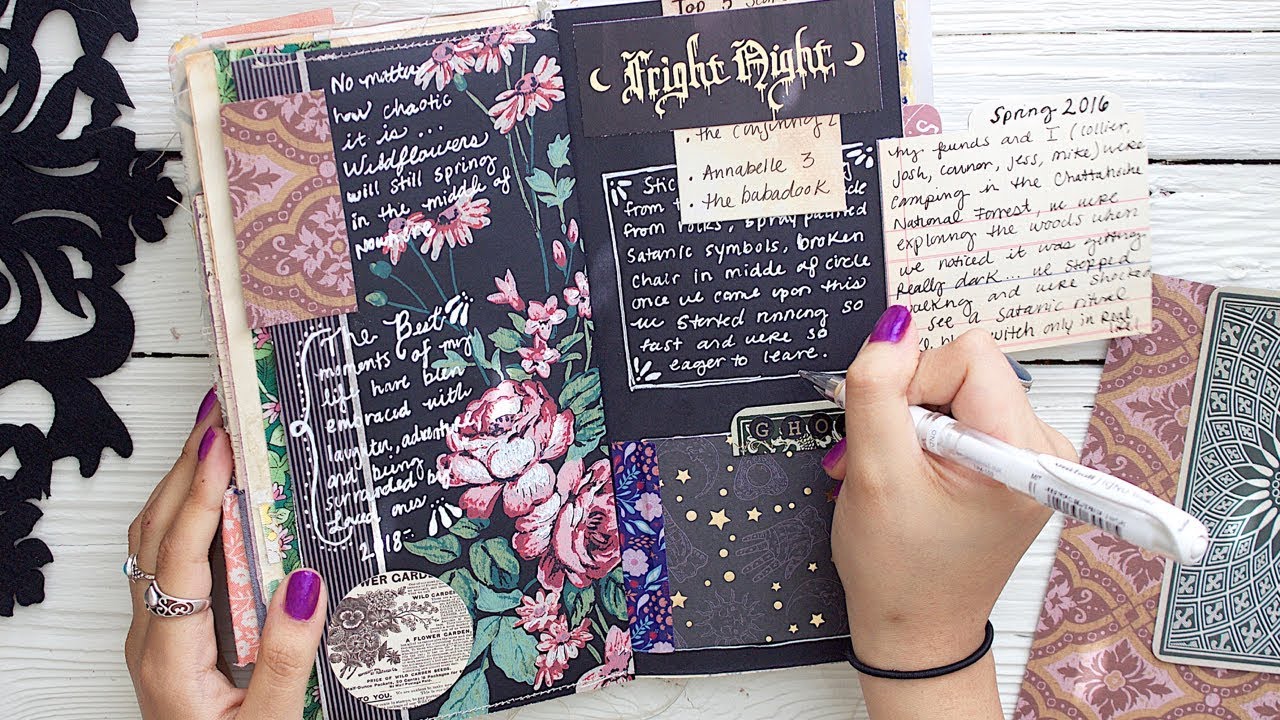 No matter
how chaotic
it is ...
Wildflowers
will still spring
in the middle of
nowhere
The Best
moments of my
life have been
embraced with
laughter, adventure
and being
surrounded by
Loved ones
2018
WILD GARDEN
A FLOWER GARDEN
PRICE OF WILD GARDEN
TO YOU.
Top 5
Fright Night
• the Conjuring 2
• Annabelle 3
• the babadook
Stic
from
from rocks, spray painted
Satanic symbols, broken
chair in middle of circle
once we came upon this
we started running so
fast and were so
eager to leave.
GHO
S
Spring 2016
my friends and I (collier,
josh, connor, jess, mike) were
camping in the Chattahoche
National Forrest, we were
exploring the woods when
we noticed it was getting
Really dark... we stopped
walking and were shocked
see a Satanic ritual
witch only in Real